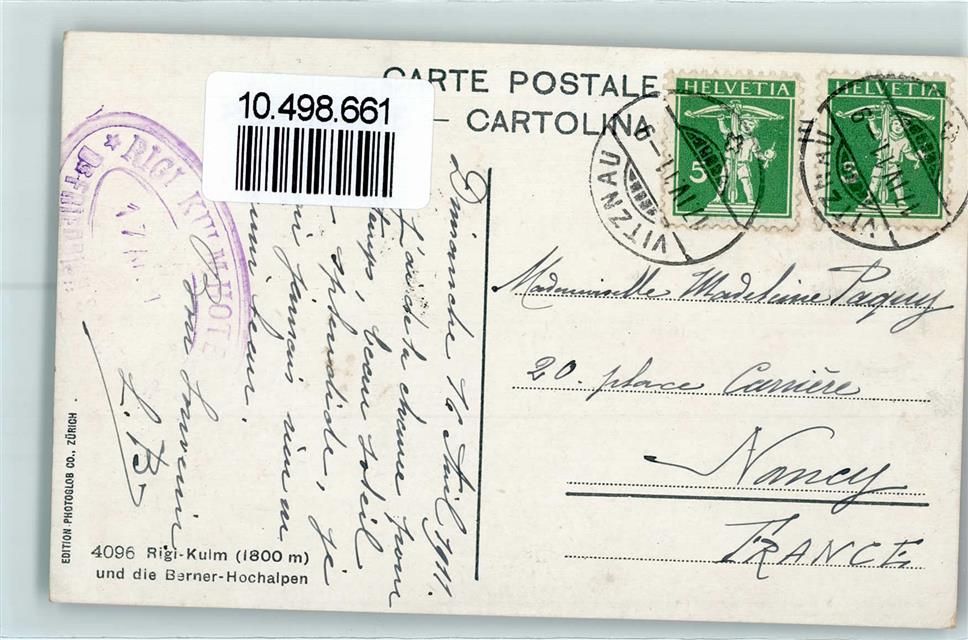 CARTE POSTALE
CARTOLINA
10.498.661
HELVETIA
5
HELVETIA
5
VITZNAU
VITZNAU
RIGI KULM HOTE
Dimanche 16 Avril 1911.
chance pour
temps, beau soleil
splendide, je
jamais rien vu
Bon Souvenir
L.B
Mademoiselle Madeleine Paquy
20. place Carrière
Nancy
FRANCE
EDITION PHOTOGLOB CO., ZÜRICH
4096 Rigi-Kulm (1800 m)
und die Berner-Hochalpen